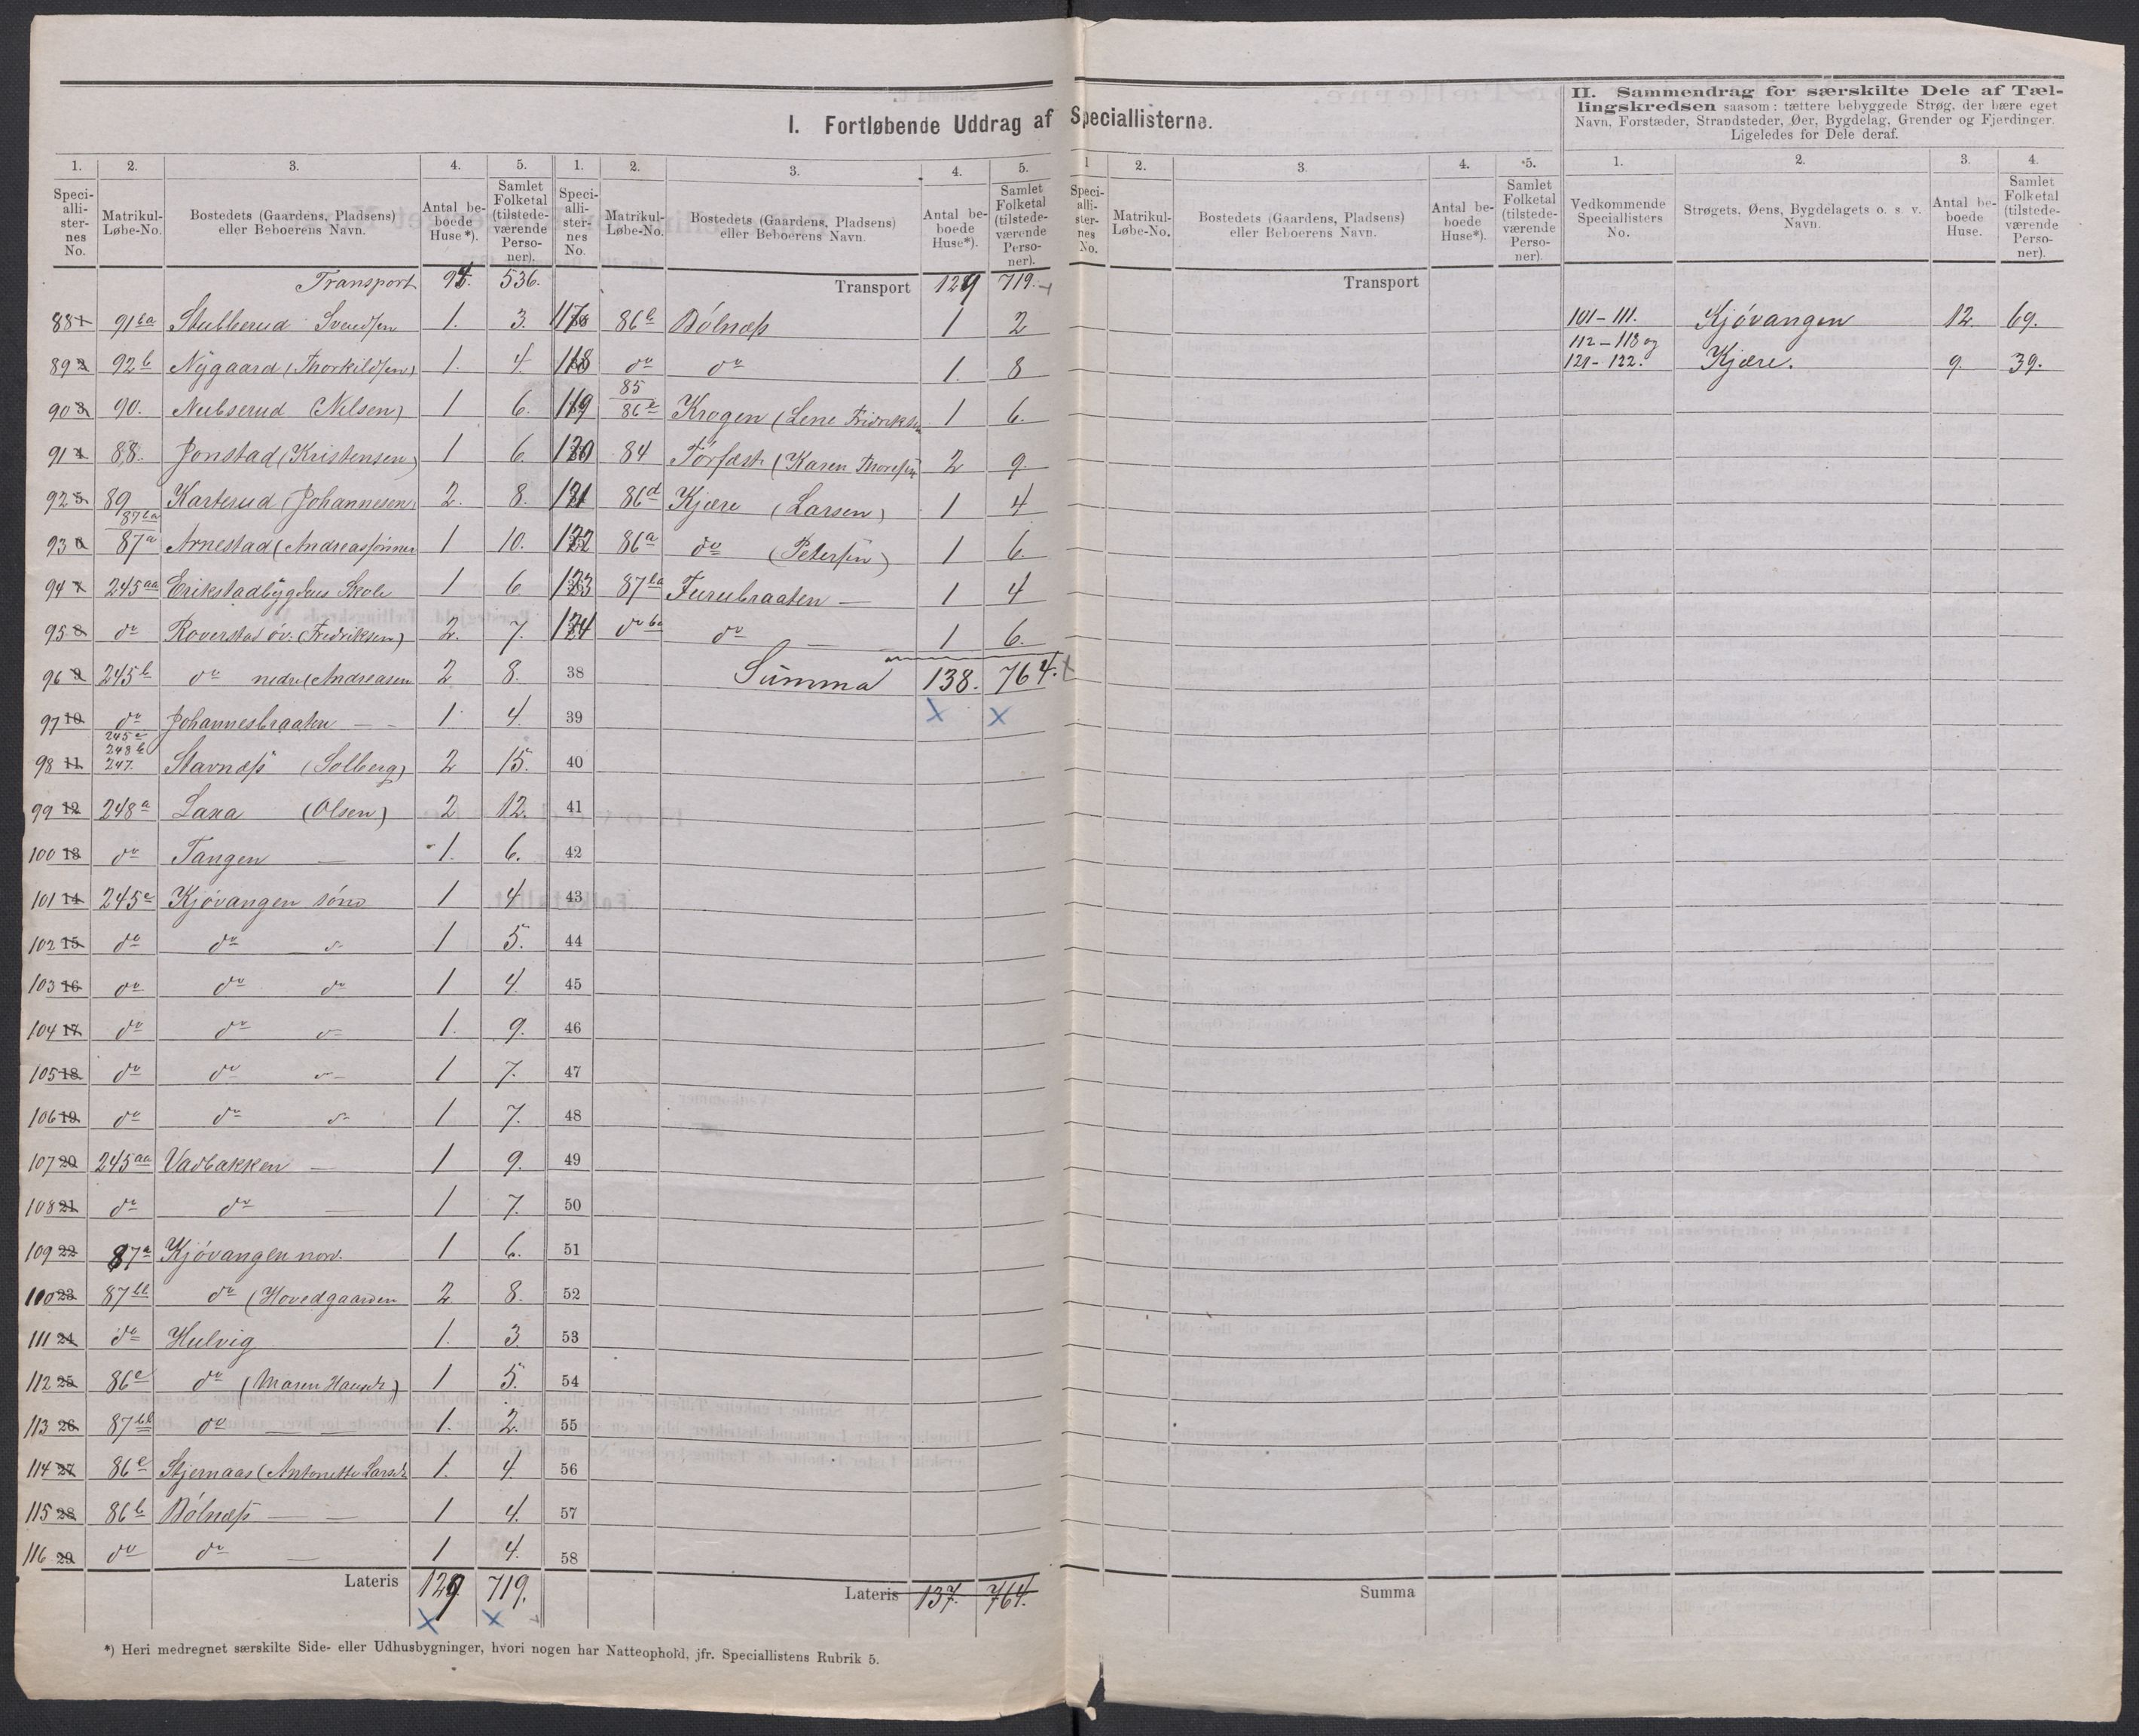 I. Fortløbende Uddrag af Speciallisterne.
II. Sammendrag for særskilte Dele af Tæl-
lingskredsen saasom: tættere bebyggede Strøg, der bære eget
Navn, Forstæder, Strandsteder, Øer, Bygdelag, Grender og Fjerdinger.
Ligeledes for Dele deraf.
1. 2. 3. 4. 5.
Speciallisternes No. Matrikul-Løbe-No. Bostedets (Gaardens, Pladsens) eller Beboerens Navn. Antal beboede Huse*). Samlet Folketal (tilstedeværende Personer).
Transport 94. 536.
88 1 91 ba Stubberud Svendsen 1. 3.
89 2 92 b Nygaard (Thorkildsen) 1. 4.
90 3 90. Nubserud (Nilsen) 1 6.
91 4 88. Jonstad (Kristensen) 1 6.
92 5 89 Karterud (Johannesen) 2. 8.
87 ba
93 6 87 a Arnestad (Andreassønner 1 10.
94 7 245 aa Erikstadbygdens Skole 1 6
95 8 do Roverstad öv. (Fredriksen) 2. 7.
96 9 245 b do nedre (Andreasen 2 8.
97 10 do Johannesbraaten 1 4.
245 c
248 b
98 11 247. Stavnæss (Solberg) 2 15.
99 12 248 a Laxa (Olsen) 2 12.
100 13 do Tangen 1. 6.
101 14 245 c Kjövangen sönd 1 4
102 15 do do do 1 5.
103 16 do do do 1 4.
104 17 do do do 1. 9.
105 18 do do do 1 7.
106 19 do do do 1 7.
107 20 245 aa Vadbakken 1 9.
108 21 do do 1 7.
109 22 87 a Kjövangen nord. 1 6.
110 23 87 bb do (Hovedgaarden 2 8.
111 24 do Hulvig 1. 3.
112 25 86 c do (Maren Hansdr) 1 5.
113 26 87 bb do 1. 2.
114 27 86 c Stjernaas (Antonette Larsdr 1. 4.
115 28 86 b Bölnæss 1 4.
116 29 do do 1 4.
Lateris 129 719.
x x
1. 2. 3. 4. 5.
Speciallisternes No. Matrikul-Løbe-No. Bostedets (Gaardens, Pladsens) eller Beboerens Navn. Antal beboede Huse*). Samlet Folketal (tilstedeværende Personer).
Transport 129 719.
117 86 b Bölnæss 1 2
118 do do 1. 8
85
119 86 e Krogen (Lene Fredriksdn 1 6.
120 84 Törfæst (Karen Thoresen 2 9.
121 86 d Kjære (Larsen) 1 4
122 86 a do (Petersen) 1 6.
123 87 ba Furubraaten 1 4
124 do ba do 1 6.
38 Summa 138. 764.
39 x x
40
41
42
43
44
45
46
47
48
49
50
51
52
53
54
55
56
57
58
Lateris 137. 764.
1 2. 3. 4. 5.
Speciallisternes No. Matrikul-Løbe-No. Bostedets (Gaardens, Pladsens) eller Beboerens Navn. Antal beboede Huse*). Samlet Folketal (tilstedeværende Personer).
Transport
Summa
1. 2. 3. 4.
Vedkommende Speciallisters No. Strøgets, Øens, Bygdelagets o. s. v. Navn. Antal beboede Huse. Samlet Folketal (tilstedeværende Personer).
101 - 111. Kjövangen 12. 69.
112 - 113 og
121 - 122. Kjære. 9. 39.
*) Heri medregnet særskilte Side- eller Udhusbygninger, hvori nogen har Natteophold, jfr. Speciallistens Rubrik 5.